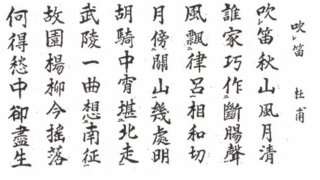 吹笛 杜甫
吹笛秋山風月清
誰家巧作斷腸聲
風飄律呂相和切
月傍關山幾處明
胡騎中宵堪北走
武陵一曲想南征
故園楊柳今搖落
何得愁中卻盡生